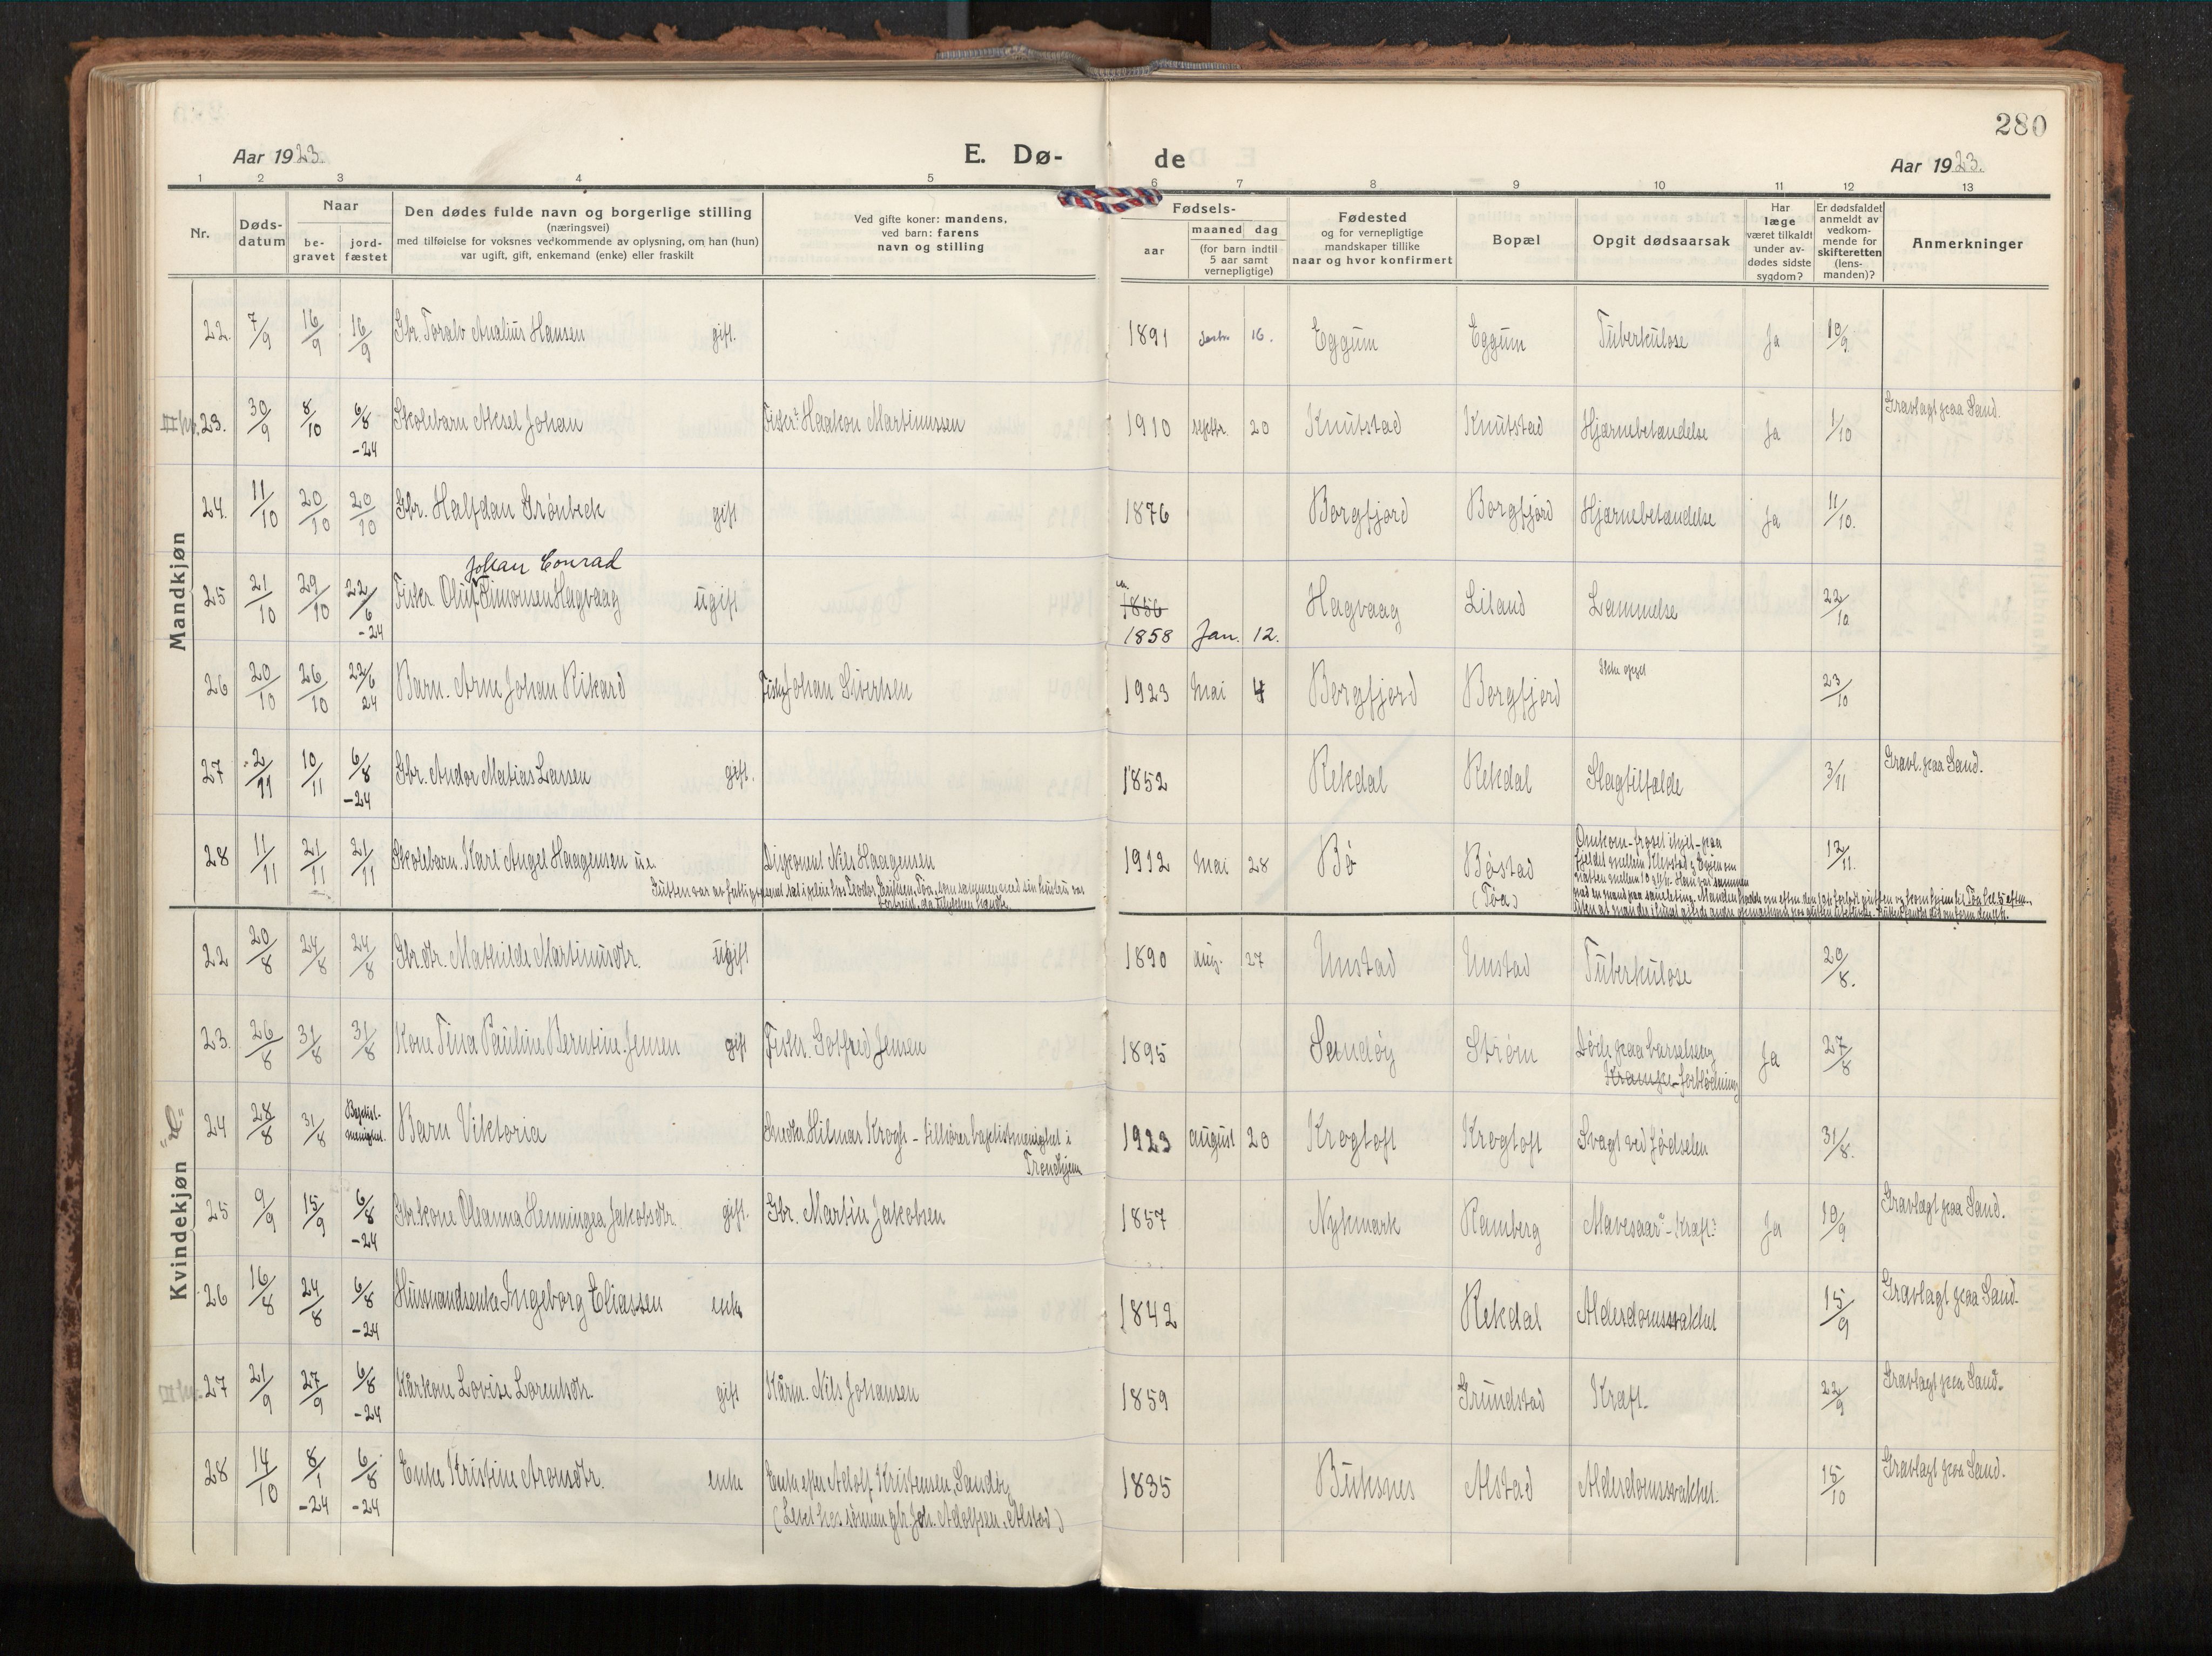 280
Aar 1923.
E. Dø-
de
Aar 1923.
1 2 3 4 5 6 7 8 9 10 11 12 13
Nr.
Døds-
datum
Naar
be-
gravet
jord-
fæstet
Den dødes fulde navn og borgerlige stilling
(næringsvei)
med tilføielse for voksnes vedkommende av oplysning, om han (hun)
var ugift, gift, enkemand (enke) eller fraskilt
Ved gifte koner: mandens,
ved barn: farens
navn og stilling
Fødsels-
aar
maaned dag
(for barn indtil
5 aar samt
vernepligtige)
Fødested
og for vernepligtige
mandskaper tillike
naar og hvor konfirmert
Bopæl
Opgit dødsaarsak
Har
læge
været tilkaldt
under av-
dødes sidste
sygdom?
Er dødsfaldet
anmeldt av
vedkom-
mende for
skifteretten
(lens-
manden)?
Anmerkninger
Mandkjøn
22. 7/9 16/9 16/9 Gbr. Toralv Analius Hansen gift. 1891 16. Eggum Eggum Tuberkulose Ja 10/9
23. 30/9 8/10 6/8 -24 Skolebarn Aksel Johan Fisker Haakon Martinussen 1910 septbr. 20 Knutstad Knutstad Hjærnebetændelse Ja 1/10 Gravlagt paa Sand.
24. 11/10 20/10 20/10 Gbr. Halfdan Grønbeck gift 1876 Borgfjord Borgfjord Hjærnebetændelse Ja 11/10.
Johan Conrad
25 21/10 29/10 22/6 -24 Fisker Oluf Simonsen Hagvaag ugift 1856 Hagvaag Liland Lammelse 22/10
1858 Jan. 12.
26 20/10 26/10 22/6 24 Barn. Arne Johan Rikard Fisker Johan Sivertsen 1923 Mai 4 Borgfjord Borgfjord Ikke opgit 23/10
27 2/11 10/11 6/8 -24 Gbr. Andor Matias Larsen gift. 1852 Rekdal Rekdal Slagtilfælde 3/11 Gravl. paa Sand.
28 11/11 21/11 21/11 Skolebarn. Karl Angel Haagensen Nils Haagensen 1912 Mai 28 Bø Bøstad (Tøa) Omkom - frosset ihjel - paa fjeldet mellem Klevstad 12/11.
Kvindekjøn
22 20/8 24/8 24/8 Gbr.dtr. Mathilde Martinusdtr. ugift 1890 aug. 27 Unstad Unstad Tuberkulose 20/8.
23. 26/8 31/8 31/8 Kone Tina Pauline Berntine Jensen gift Fisker. Gotfred Jensen 1895 Sandøy Strøm Døde paa barselseng Krampe forblødning Ja 27/8
24 28/8 31/8 Baptist-menighet. Barn Viktoria Snedker Hilmar Krogh - tilhører baptistmenighet i
Trondhjem
1923 august 20 Krogtoft Krogtoft Svagt ved fødselen 31/8.
25 9/9 15/9 6/8 -24 Gbr.kone Oleanna Henningea Jakobsdtr. gift. Gbr. Martin Jakobsen 1857 Nykmark Ramberg Mavesaar - Kræft? Ja 10/9 Gravlagt paa Sand.
26 16/8 24/8 6/8 -24 Husmandsenke Ingeborg Eliassen enke 1842 Rekdal Alderdomssvakhet 15/9 Gravlagt paa Sand.
27 21/9 27/9 6/8 -24 Kårkone Lovise Lorentsdtr. gift Kårm. Nils Johansen 1859 Grundstad Kræft. 22/9 Gravlagt paa Sand.
28 14/10 8/1 -24 6/8 -24 Enke Kristine Aronsdtr. enke Enke efter Adolf Kristensen, Sandøy
(Levet hos sønnen gbr. Joh. Adolfsen, Alstad.)
1835 Buksnes Alstad Alderdomssvakhet. 15/10 Gravlagt paa Sand.